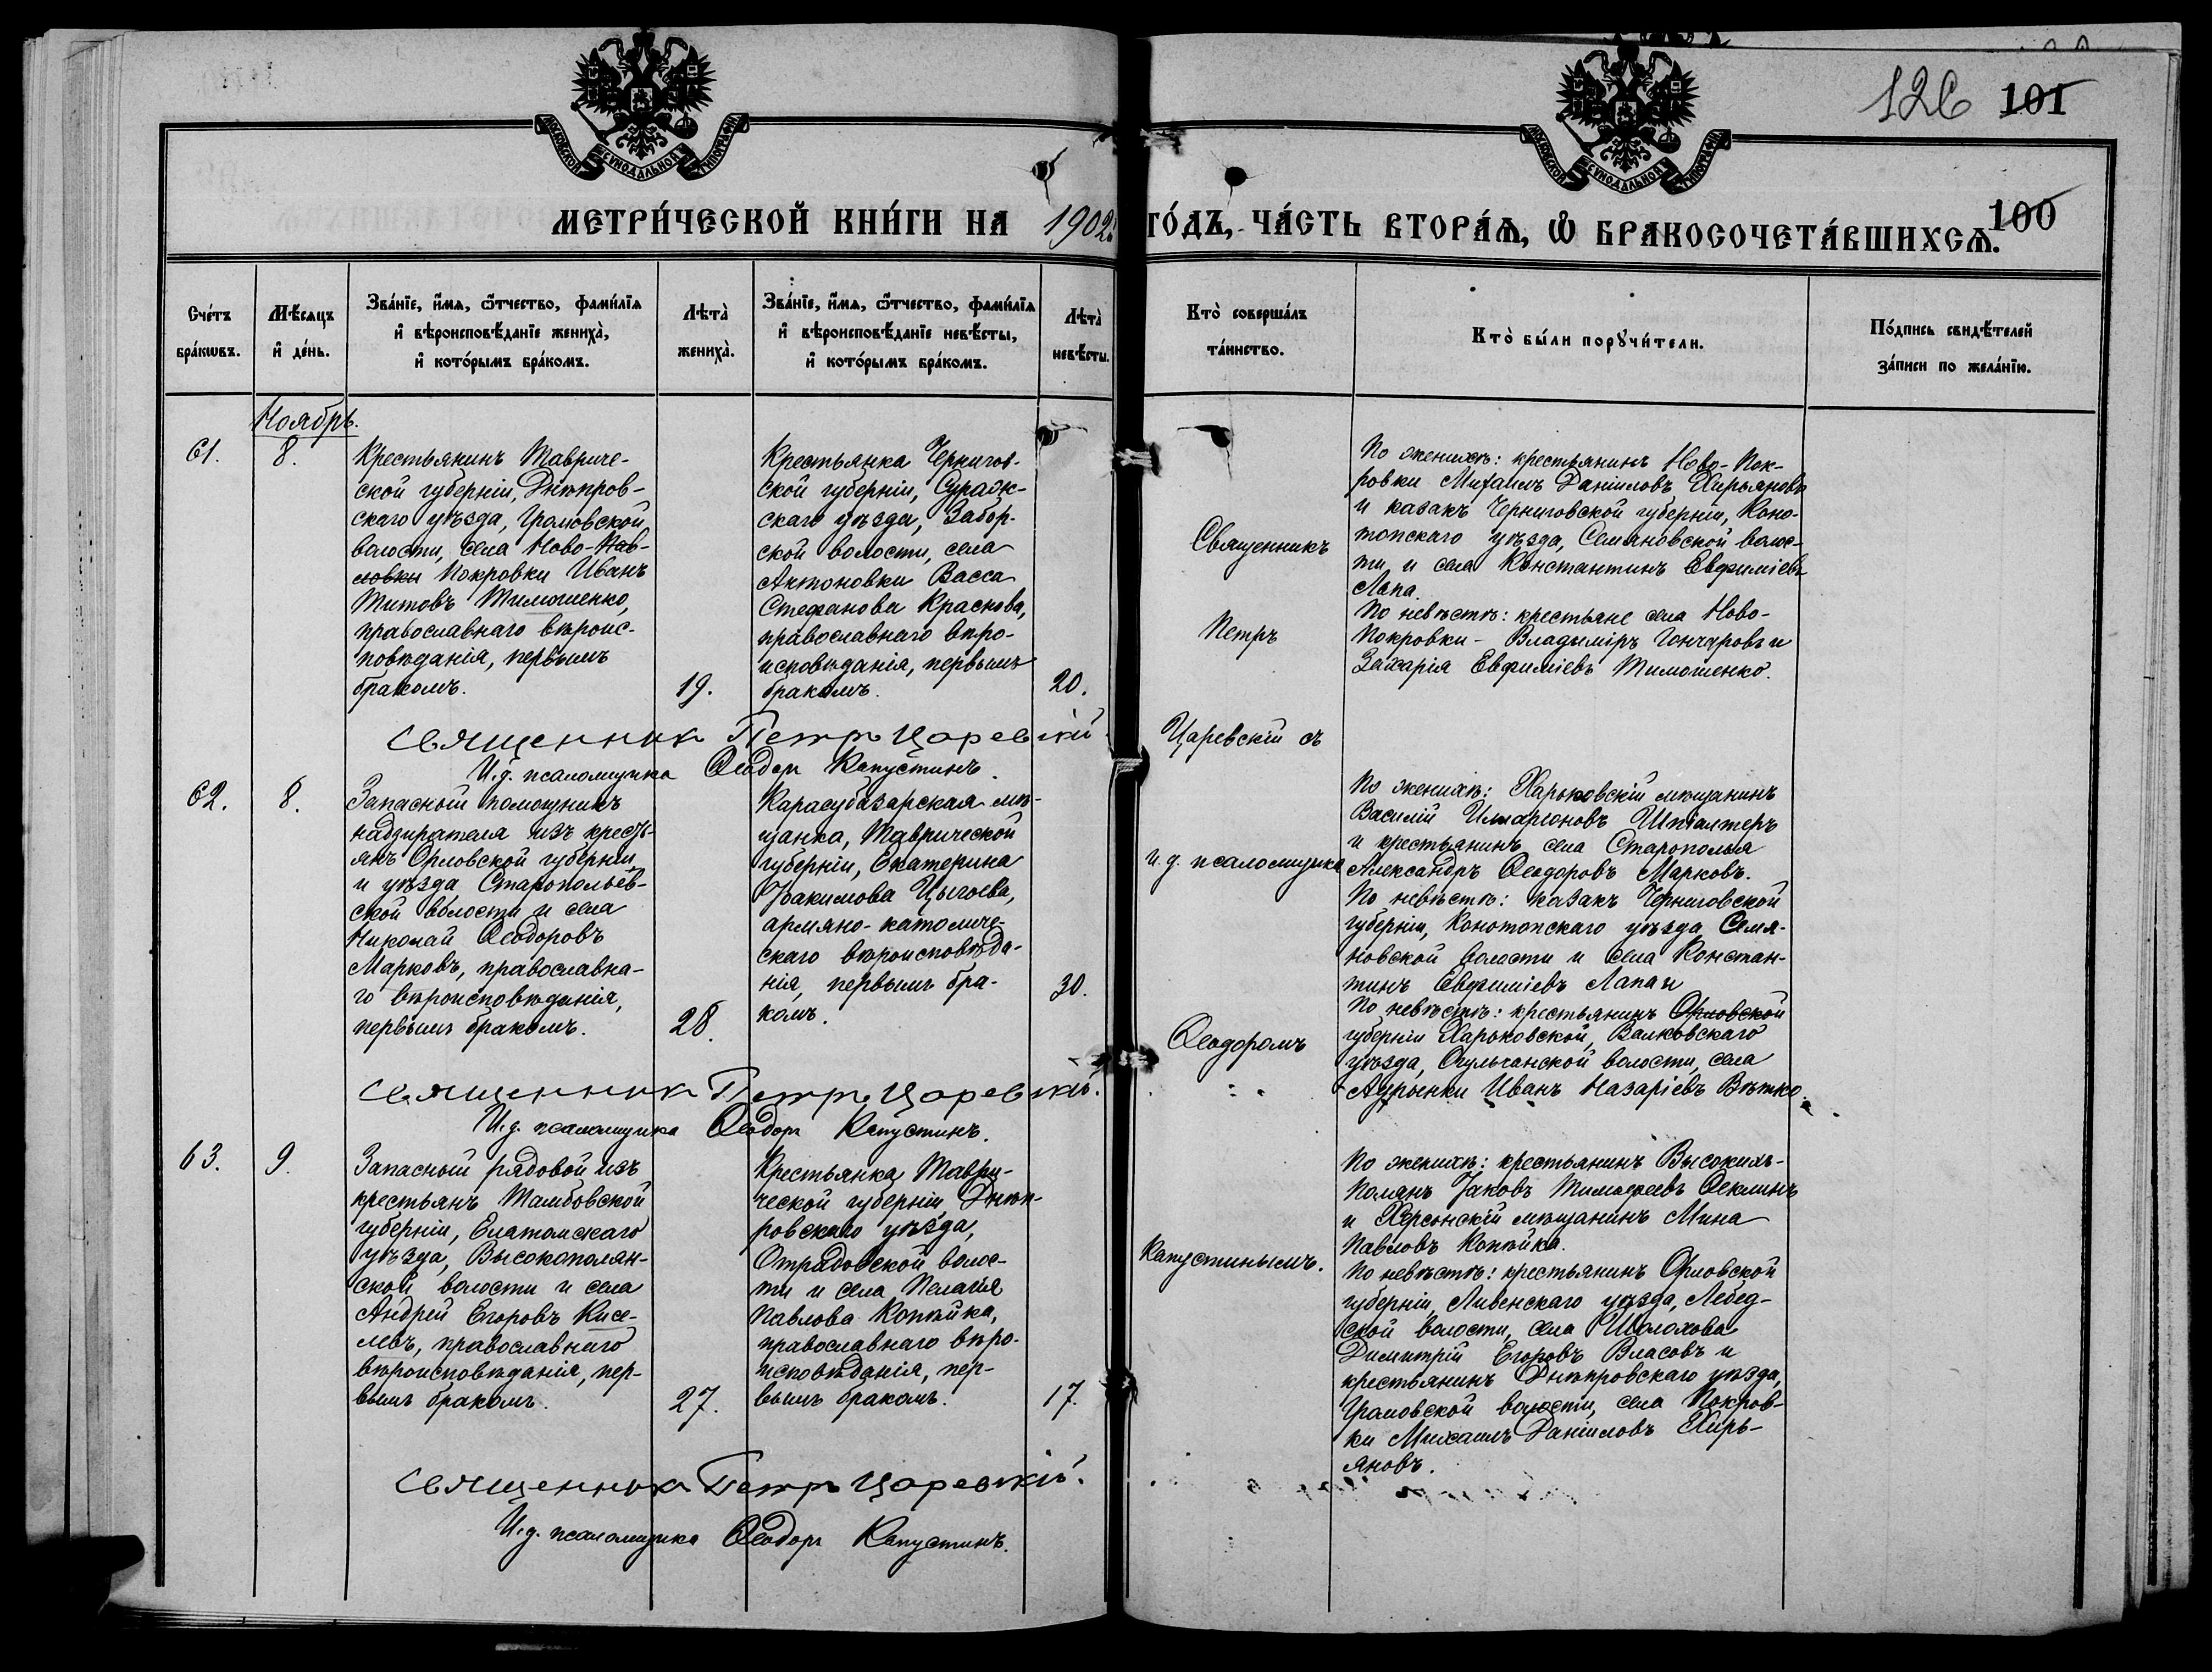 МОСКОВСКОЙ СѴНОДАЛЬНОЙ ТИПОГРАФІИ
МОСКОВСКОЙ СѴНОДАЛЬНОЙ ТИПОГРАФІИ
126 101
МЕТРИ́ЧЕСКОЙ КНИ́ГИ НА 1902 ГО́ДЪ, ЧА́СТЬ ВТОРА́Ѧ, Ѡ БРАКОСОЧЕТА́ВШИХСѦ.
100
Сче́тъ
бра́кѡвъ.
Мѣ́сѧцъ
и҆ де́нь.
Зва́нїе, и҆́мѧ, ѻ҆́тчество, фами́лїѧ
и҆ вѣроисповѣ́данїе жениха̀,
и҆ кото́рымъ бра́комъ.
Лѣта̀
жениха̀.
Зва́нїе, и҆́мѧ, ѻ҆́тчество, фами́лїѧ
и҆ вѣроисповѣ́данїе невѣ́сты,
и҆ кото́рымъ бра́комъ.
Лѣта̀
невѣ́сты.
Кто̀ соверша́лъ
та́инство.
Кто̀ бы́ли порꙋчи́тели.
По́дпись свидѣ́телей
за́писи по жела́нїю.
Ноябрь.
61.
8.
Крестьянинъ Тавриче-
ской губерніи, Днѣпров-
скаго уѣзда, Громовской
волости, села Ново-Пав-
ловки Покровки Иванъ
Титовъ Тимошенко,
православнаго вѣроис-
повѣданія, первымъ
бракомъ.
19.
Крестьянка Чернигов-
ской губерніи, Сураж-
скаго уѣзда, Забор-
ской волости, села
Антоновки Васса
Стефанова Краснова,
православнаго вѣро-
исповѣданія, первымъ
бракомъ.
20.
Священникъ
Петръ
Царевскій съ
и. д. псаломщика
Ѳеодоромъ
Капустинымъ.
По женихѣ: крестьянинъ Ново-Пок-
ровки Михаилъ Даніиловъ Хирьяновъ
и казакъ Черниговской губерніи, Коно-
топскаго уѣзда, Семяновской волос-
ти и села Константинъ Евфиміевъ
Лапа.
По невѣстѣ: крестьяне села Ново-
Покровки - Владыміръ Гончаровъ и
Захарія Евфиміевъ Тимошенко.
Священникъ Петръ Царевскій
И. д. псаломщика Ѳеодоръ Капустинъ.
62.
8.
Запасной помощникъ
надзирателя изъ кресть-
янъ Орловской губерніи
и уѣзда Старопольев-
ской волости и села
Николай Ѳеодоровъ
Марковъ, православна-
го вѣроисповѣданія,
первымъ бракомъ.
28.
Карасубазарская мѣ-
щанка, Таврической
губерніи, Екатерина
Іоакимова Цыгоева,
армяно-католиче-
скаго вѣроисповѣда-
нія, первымъ бра-
комъ.
30.
По женихѣ: Харьковскій мѣщанинъ
Василій Иларіоновъ Шпіалтеръ
и крестьянинъ села Старополья
Александръ Ѳеодоровъ Марковъ.
По невѣстѣ: казакъ Черниговской
губерніи, Конотопскаго уѣзда, Семя-
новской волости и села Констан-
тинъ Евфиміевъ Лапа и
По невѣстѣ: крестьянинъ Орловской
губерніи Харьковской, Валковскаго
уѣзда, Огульчанской волости, села
Адрынки Иванъ Назаріевъ Вѣтко.
Священникъ Петръ Царевскій.
И. д. псаломщика Ѳеодоръ Капустинъ.
63.
9.
Запасной рядовой изъ
крестьянъ Тамбовской
губерніи, Елатомскаго
уѣзда, Высокополян-
ской волости и села
Андрей Егоровъ Кисе-
левъ, православнаго
вѣроисповѣданія, пер-
вымъ бракомъ.
27.
Крестьянка Таври-
ческой губерніи, Днѣп-
ровскаго уѣзда,
Отрадовской волос-
ти и села Пелагія
Павлова Копѣйка,
православнаго вѣро-
исповѣданія, пер-
вымъ бракомъ.
17.
По женихѣ: крестьянинъ Высокихъ-
Полянъ Іаковъ Тимоѳеевъ Ѳеклинъ
и Херсонскій мѣщанинъ Мина
Павловъ Копѣйка.
По невѣстѣ: крестьянинъ Орловской
губерніи, Ливенскаго уѣзда, Лебед-
ской волости, села Шолохова
Димитрій Егоровъ Власовъ и
крестьянинъ Днѣпровскаго уѣзда,
Громовской волости, села Покров-
ки Михаилъ Даніиловъ Хирь-
яновъ.
Священникъ Петръ Царевскій.
И. д. псаломщика Ѳеодоръ Капустинъ.